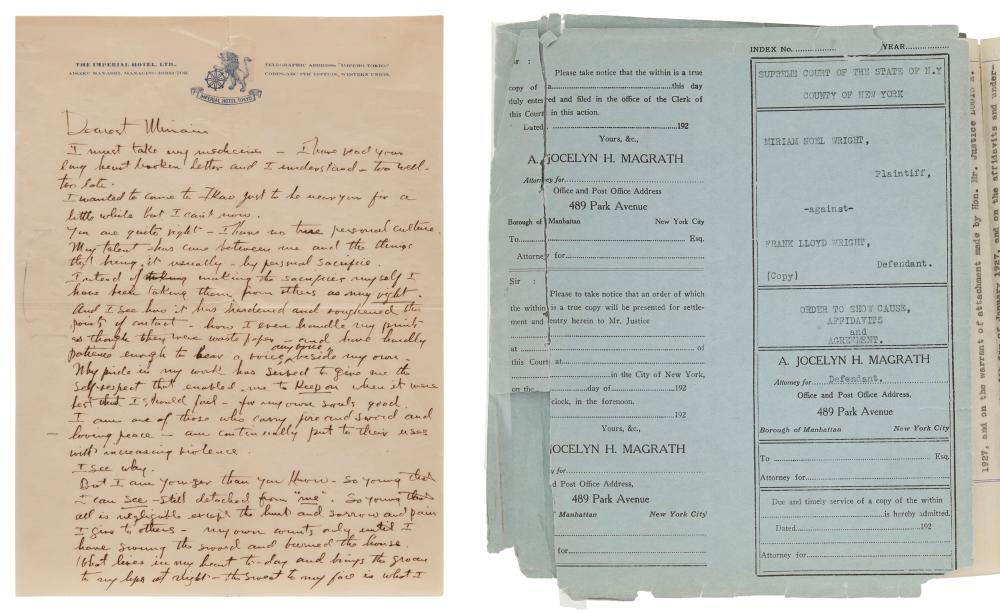 THE IMPERIAL HOTEL, LTD.
AISAKU HAYASHI, MANAGING DIRECTOR.
TELEGRAPHIC ADDRESS "IMPEHO TOKIO"
CODES-ABC 5TH EDITION, WESTERN UNION.
IMPERIAL HOTEL TOKYO
Dearest Miriam
I must take my medicine – I have read your
long heart broken letter and I understand – too well–
too late.
I wanted to come to Ikao just to be near you for a
little while but I can't now.
You are quite right – I have no true personal culture.
My talent has come between me and the things
that bring it usually – by personal sacrifice.
Instead of making the sacrifice myself I
have been taking them from others as my right.
And I see how it has hardened and roughened the
points of contact – how I even handle my prints
as though they were waste paper – and have hardly
patience enough to hear a voice beside my own.
My pride in my work has served to give me the
self-respect that enabled me to keep on when it were
best that I should fail – for my own souls good.
I am one of those who carry fire and sword and
loving peace – am continually put to their uses
with increasing violence.
I see why.
But I am younger than you know – so young that
I can see – still detached from "me". So young that
all is negligible except the hurt and sorrow and pain
I give to others – my own counts only until I
have swung the sword and burned the house.
What lives in my heart to-day and brings the groan
to my lips at night – the sweat to my face is what I
Sir :
Please take notice that the within is a true
copy of a this day
duly entered and filed in the office of the Clerk of
this Court in this action.
Dated, 192
Yours, &c.,
A. JOCELYN H. MAGRATH
Attorney for
Office and Post Office Address
489 Park Avenue
Borough of Manhattan New York City
To Esq.
Attorney for
Sir :
Please to take notice that an order of which
the within is a true copy will be presented for settle-
ment and entry herein to Mr. Justice
at of
this Court at
in the City of New York,
on the day of 192
clock, in the forenoon.
192
Yours, &c.,
JOCELYN H. MAGRATH
y for
d Post Office Address,
489 Park Avenue
Manhattan New York City
for
INDEX No. YEAR
SUPREME COURT OF THE STATE OF N.Y
COUNTY OF NEW YORK
MIRIAM NOEL WRIGHT,
Plaintiff,
-against-
FRANK LLOYD WRIGHT,
Defendant.
(Copy)
ORDER TO SHOW CAUSE,
AFFIDAVITS
and
AGREEMENT.
A. JOCELYN H. MAGRATH
Attorney for Defendant.
Office and Post Office Address,
489 Park Avenue
Borough of Manhattan New York City
To Esq.
Attorney for
Due and timely service of a copy of the within
is hereby admitted.
Dated 192
Attorney for
1927, and on the warrant of attachment made by Hon. Mr. Justice LOUIS A.
of January 1927, and on the affidavits and under-